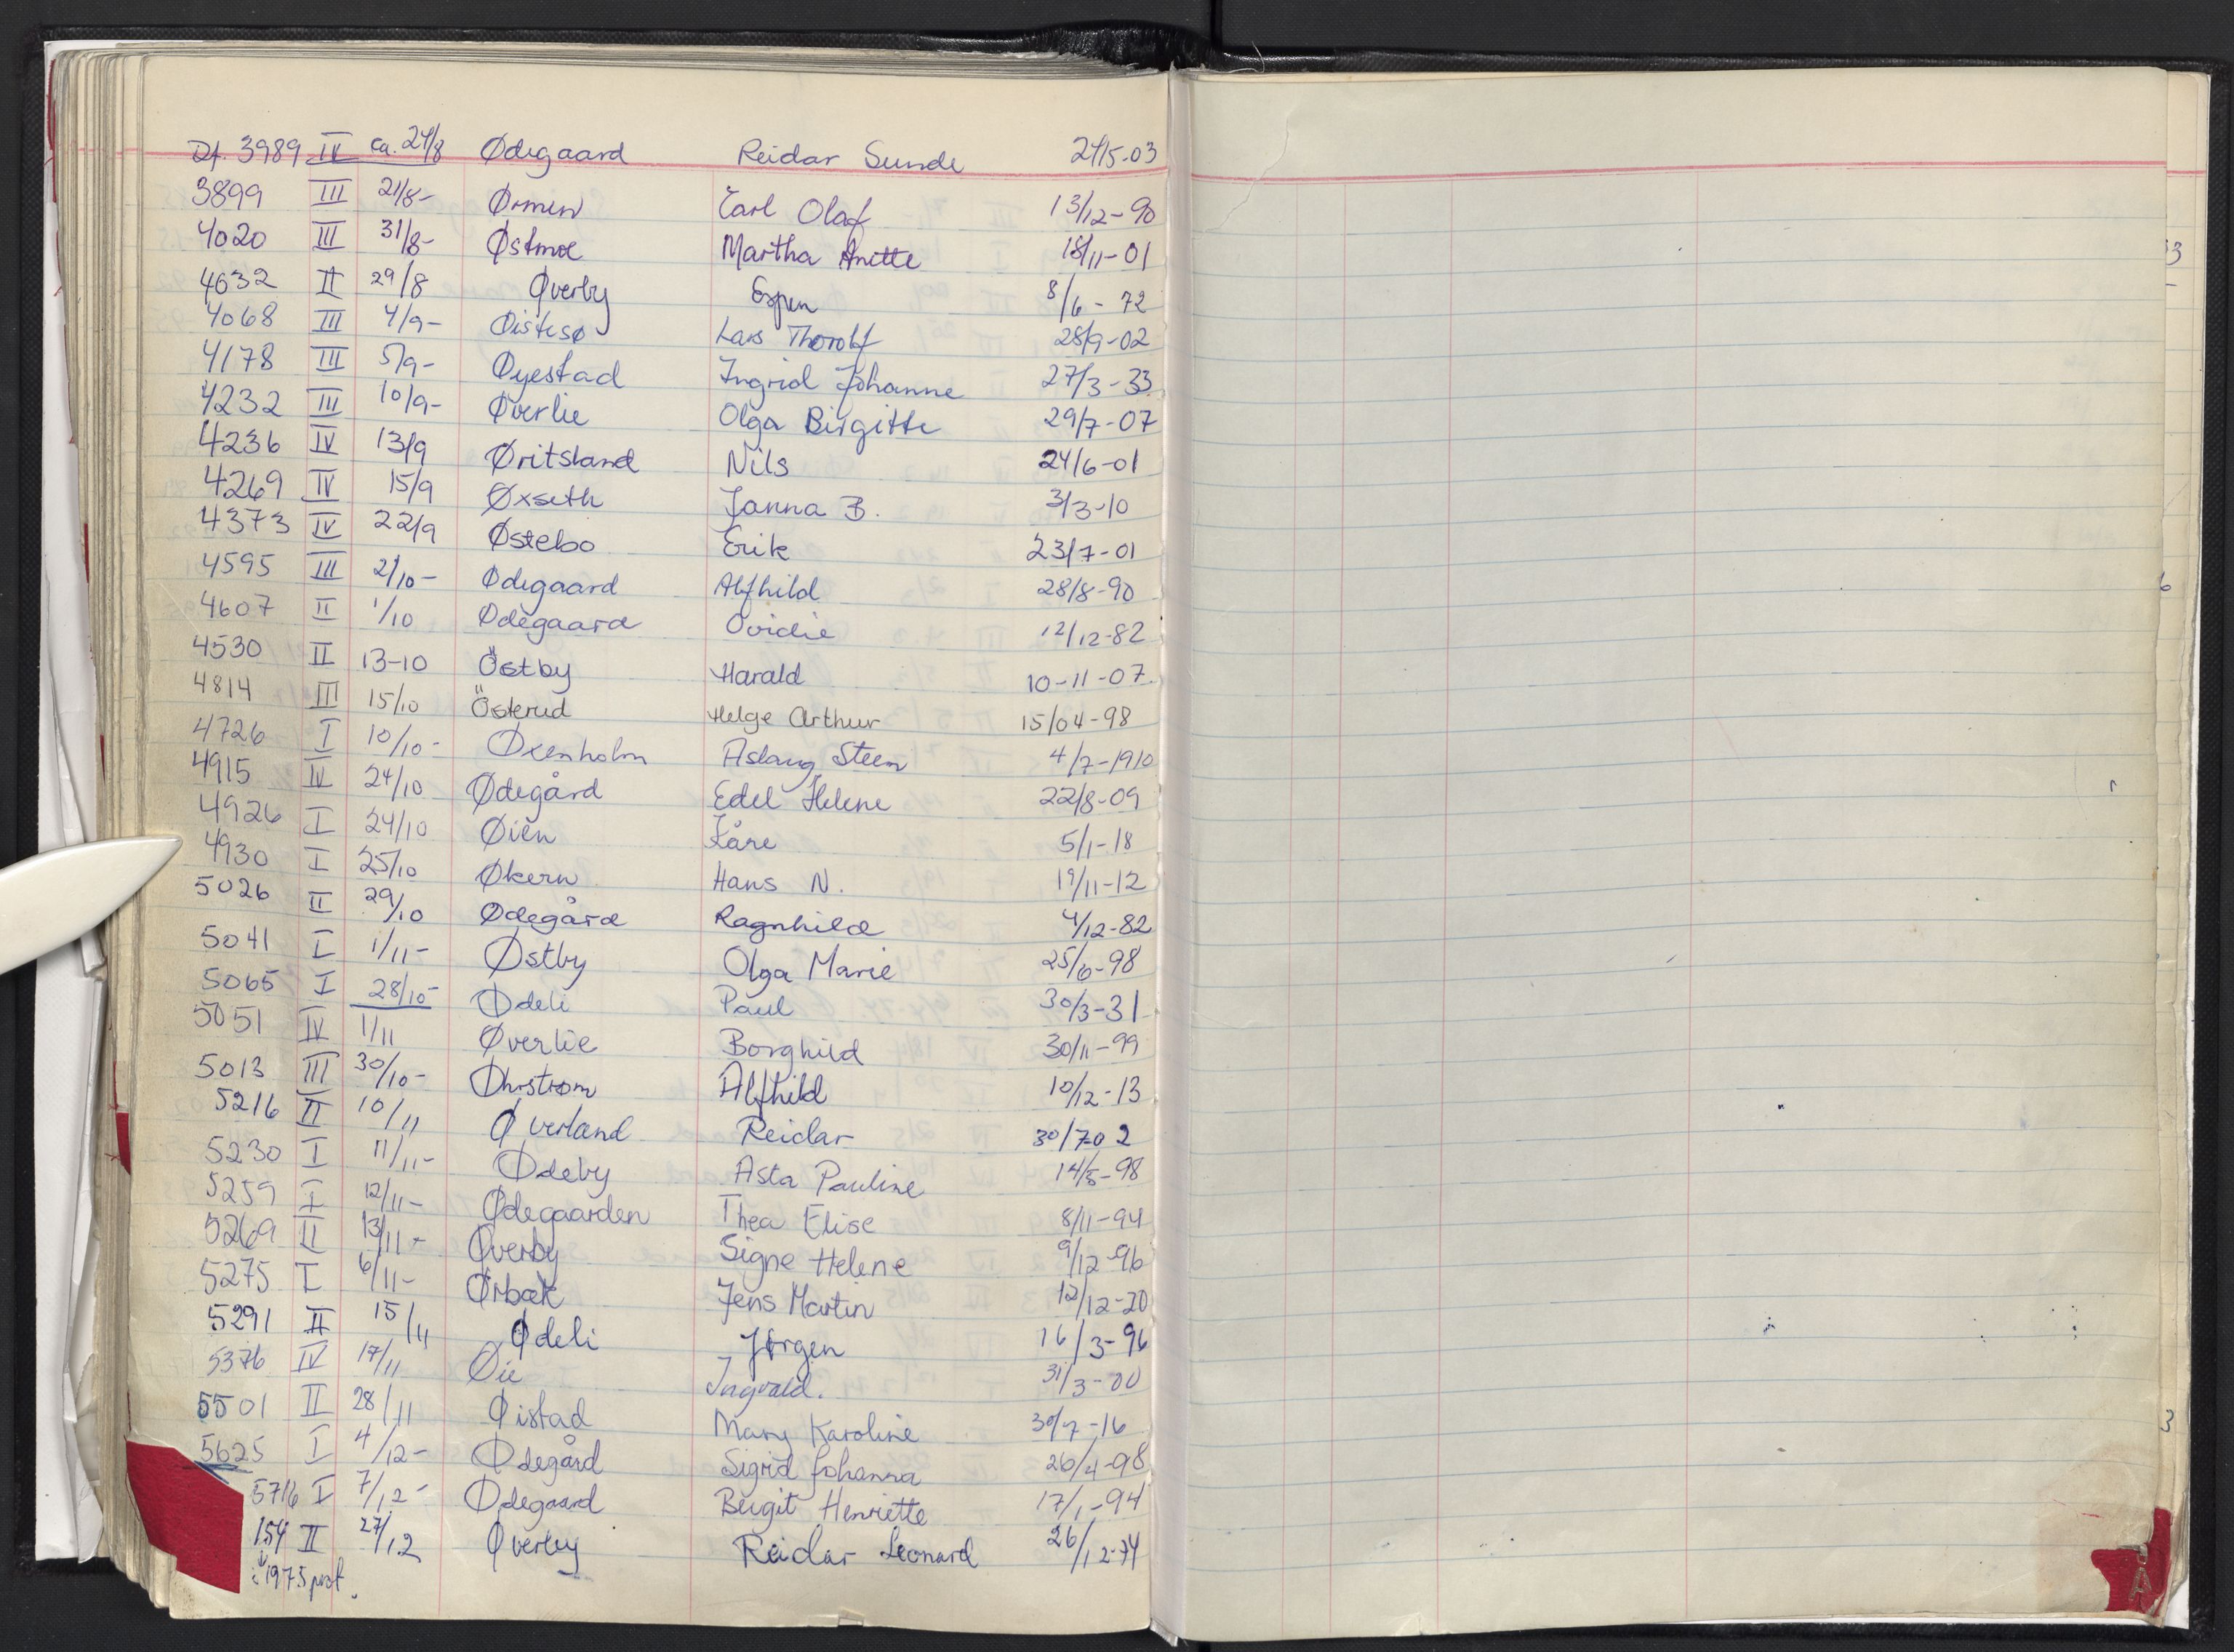 Df. 3989 IV ca. 24/8 Ødegaard Reidar Sunde 24/5-03
3899 III 21/8- Ørmen Carl Olaf 13/12-90
4020 III 31/8- Østmoe Martha Anette 18/11-01
4032 II 29/8 Øverby Espen 8/6-72
4068 III 4/9- Øistesø Lars Thorolf 28/9-02
4178 III 5/9- Øyestad Ingrid Johanne 27/3-33
4232 III 10/9- Øverlie Olga Birgitte 29/7-07
4236 IV 13/9 Øritsland Nils 24/6-01
4269 IV 15/9 Øxseth Janna B. 3/3-10
4373 IV 22/9 Østebo Erik 23/7-01
4595 III 2/10- Ødegaard Alfhild 28/8-90
4607 II 1/10 Ødegaard Ovidie 12/12-82
4530 II 13-10 Östby Harald 10-11-07
4814 III 15/10 Österud Helge Arthur 15/04-98
4726 I 10/10- Øxenholm Aslaug Steen 4/7-1910
4915 IV 24/10 Ødegård Edel Helene 22/8-09
4926 I 24/10 Øien Kåre 5/1-18
4930 I 25/10 Økern Hans N. 19/11-12
5026 II 29/10 Ødegård Ragnhild 4/12-82
5041 I 1/11- Østby Olga Marie 25/6-98
5065 I 28/10- Ødeli Paul 30/3-31
5051 IV 1/11 Øverlie Borghild 30/11-99
5013 III 30/10- Øhrstrøm Alfhild 10/12-13
5216 II 10/11 Øverland Reidar 30/7-02
5230 I 11/11- Ødeby Asta Pauline 14/5-98
5259 I 12/11- Ødegaarden Thea Elise 8/11-94
5269 II 13/11- Øverby Signe Helene 9/12-96
5275 I 6/11- Ørbæk Jens Martin 12/12-20
5291 II 15/11 Ødeli Jørgen 16/3-96
5376 IV 17/11 Øie Ingvald. 31/3-00
5501 II 28/11 Øistad Mary Karoline 30/7-16
5625 I 4/12- Ødegård Sigrid Johanna 26/4-98
5716 I 7/12- Ødegaard Birgit Henriette 17/1-94
154 II 27/12 Øverby Reidar Leonard 26/12-74
i 1975 prot.